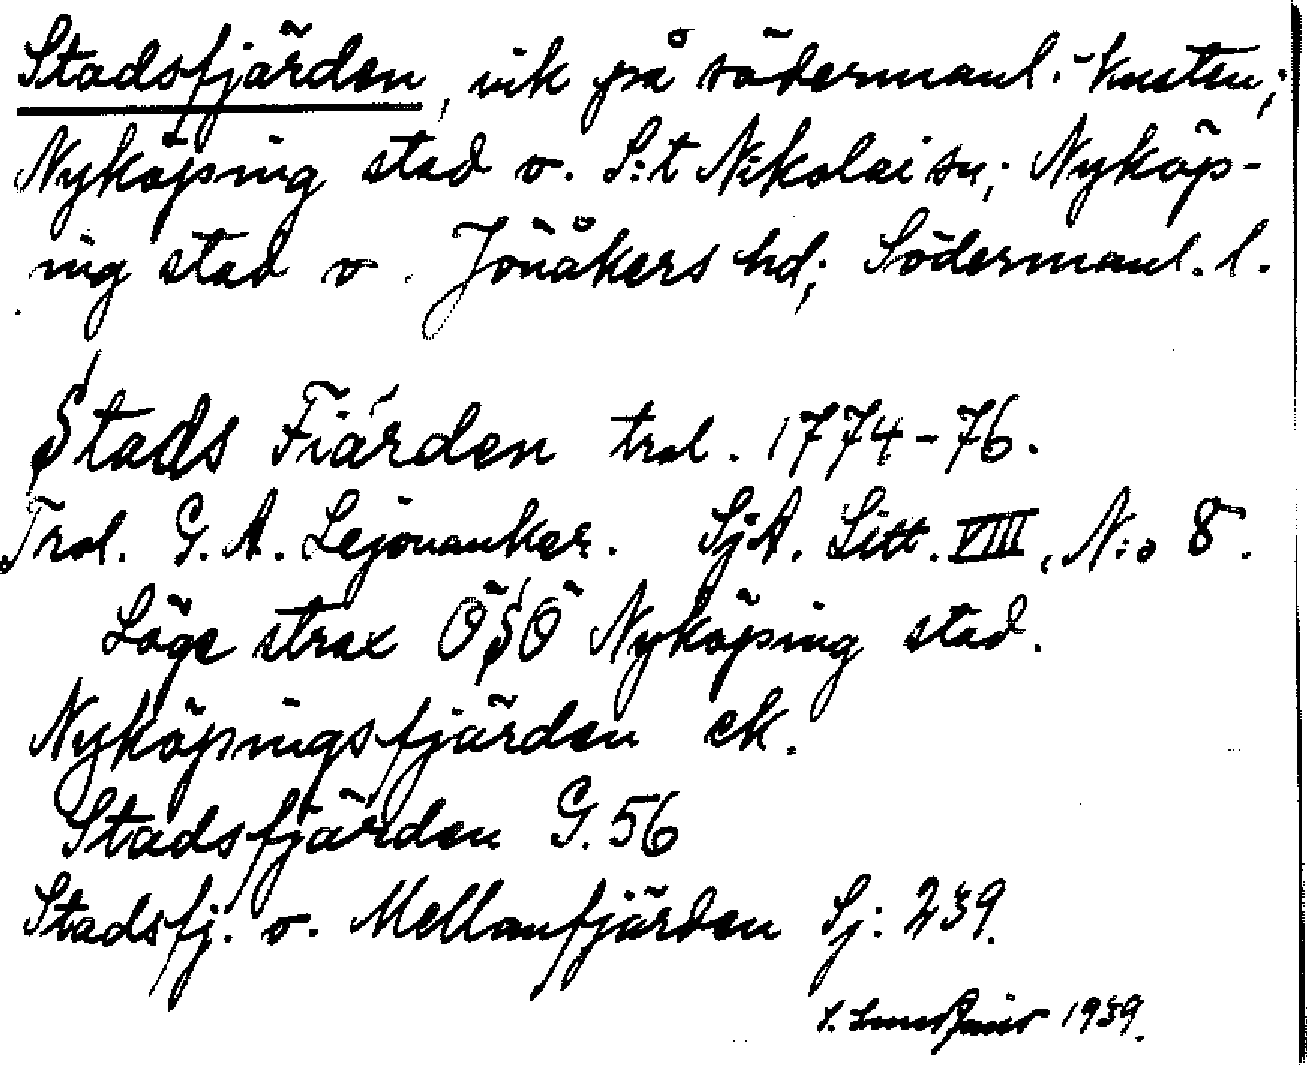 Stadsfjärden, vik på södermanl. kusten;
Nyköping stad o. S:t Nikolai sn; Nyköp-
ing stad o. Jönåkers hd; Södermanl. l.
Stads Fiärden trol. 1774-76.
Trol. G. A. Lejonanker. SjA. Litt. VIII, N:o 8.
Läge strax ÖSÖ Nyköping stad.
Nyköpingsfjärden ek.
Stadsfjärden G. 56
Stadsfj. o. Mellanfjärden Sj: 239.
1939.